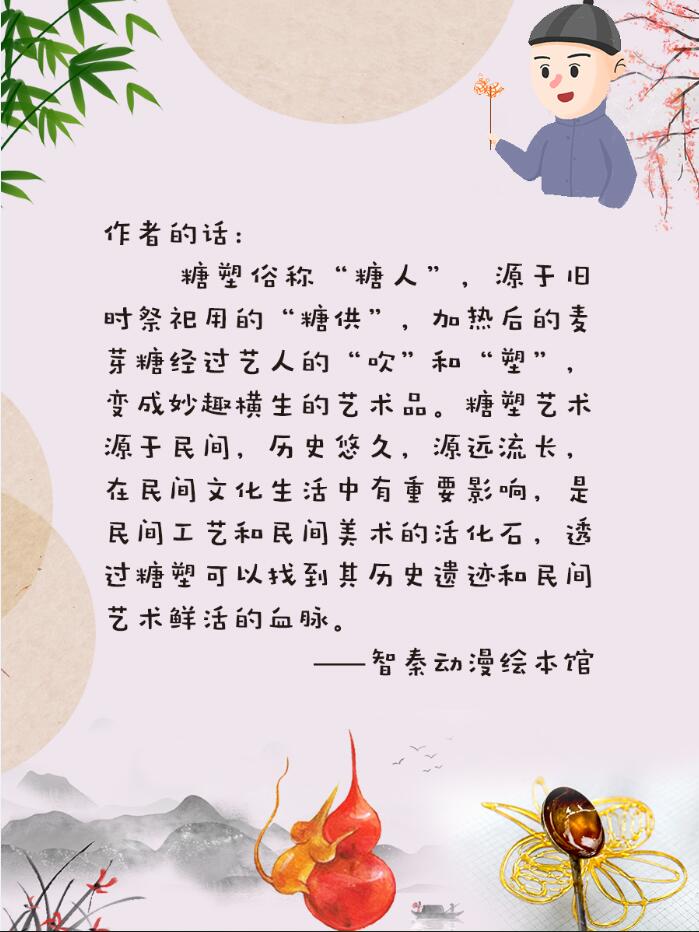 作者的话：
糖塑俗称“糖人”，源于旧
时祭祀用的“糖供”，加热后的麦
芽糖经过艺人的“吹”和“塑”，
变成妙趣横生的艺术品。糖塑艺术
源于民间，历史悠久，源远流长，
在民间文化生活中有重要影响，是
民间工艺和民间美术的活化石，透
过糖塑可以找到其历史遗迹和民间
艺术鲜活的血脉。
——智秦动漫绘本馆